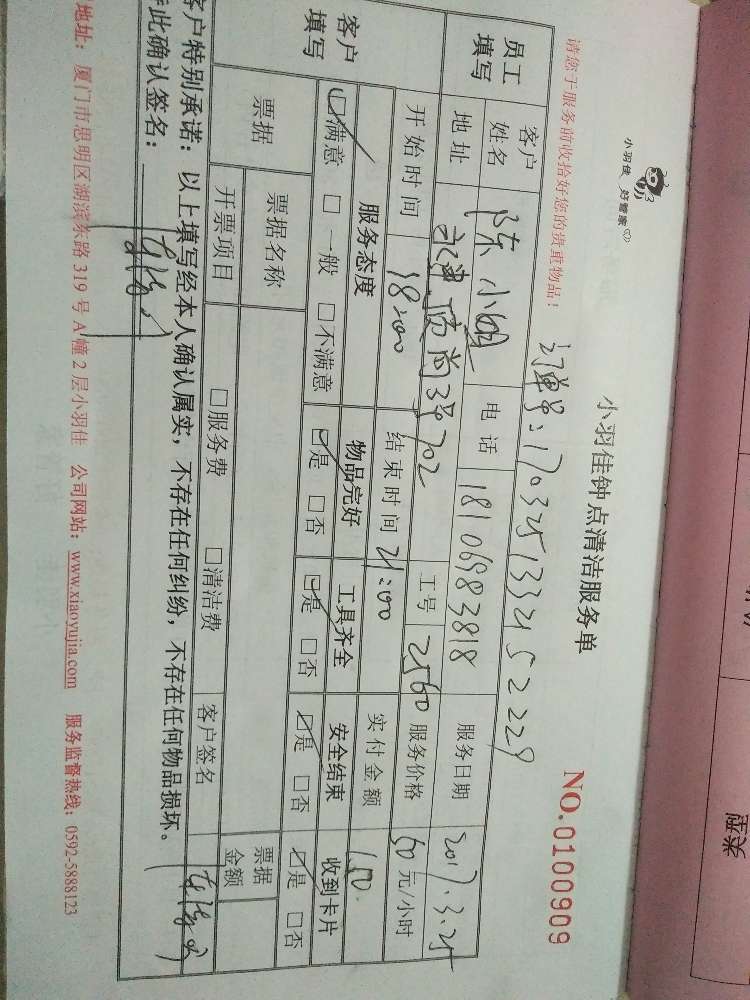 小羽佳 好管家
小羽佳钟点清洁服务单
请您于服务前收拾好您的贵重物品！
订单号：170325133252229
NO.0100909
员工填写
客户姓名 陈小姐 电话 18106983818 服务日期 2017.3.25
地址 3号702 工号 2560 服务价格 60元/小时
开始时间 18:00 结束时间 21:00 实付金额 150
客户填写
服务态度 物品完好 工具齐全 安全结束 收到卡片
☑满意 □一般 □不满意 ☑是 □否 ☑是 □否 ☑是 □否 ☑是 □否
票据 票据名称 票据金额
开票项目 □服务费 □清洁费 客户签名
客户特别承诺：以上填写经本人确认属实，不存在任何纠纷，不存在任何物品损坏。
特此确认签名：
地址：厦门市思明区湖滨东路319号A幢2层小羽佳 公司网站：www.xiaoyujia.com 服务监督热线：0592-5888123